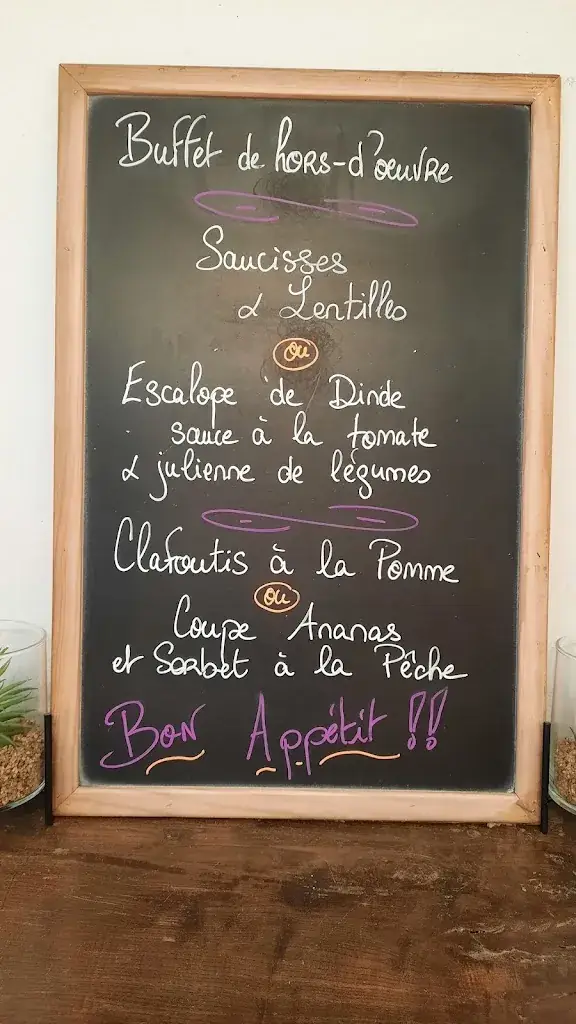 Buffet de hors-d'œuvre
Saucisses
& Lentilles
ou
Escalope de Dinde
sauce à la tomate
& julienne de légumes
Clafoutis à la Pomme
ou
Coupe Ananas
et Sorbet à la Pêche
Bon Appétit !!